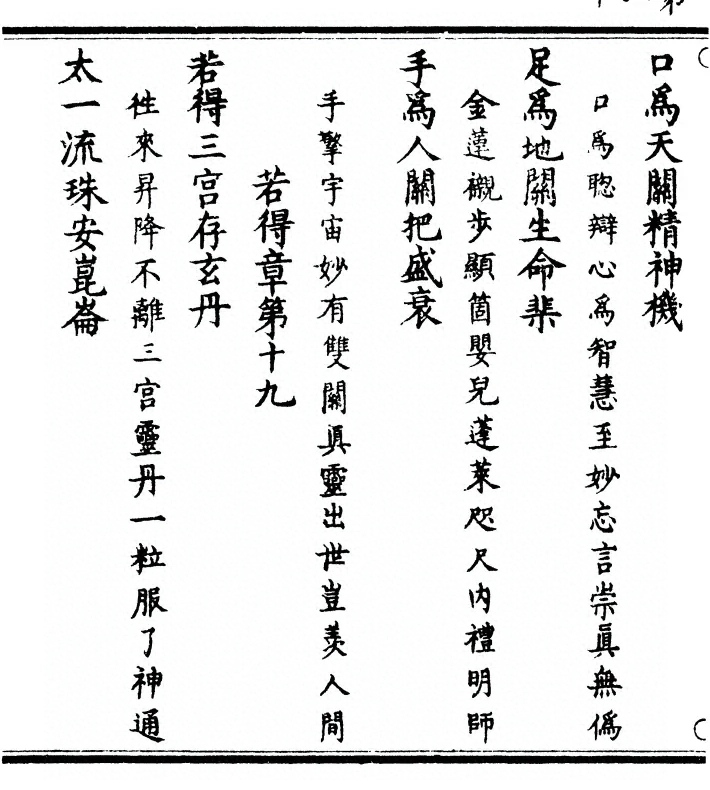 口為天關精神機
口為聰辯心為智慧至妙忘言崇眞無僞
足為地關生命棐
金蓮襯步顯箇嬰兒蓬萊咫尺內禮明師
手為人關把盛衰
手擎宇宙妙有雙關眞靈出世豈羨人間
若得章第十九
若得三宮存玄丹
徃來昇降不離三宮靈丹一粒服了神通
太一流珠安崑崙